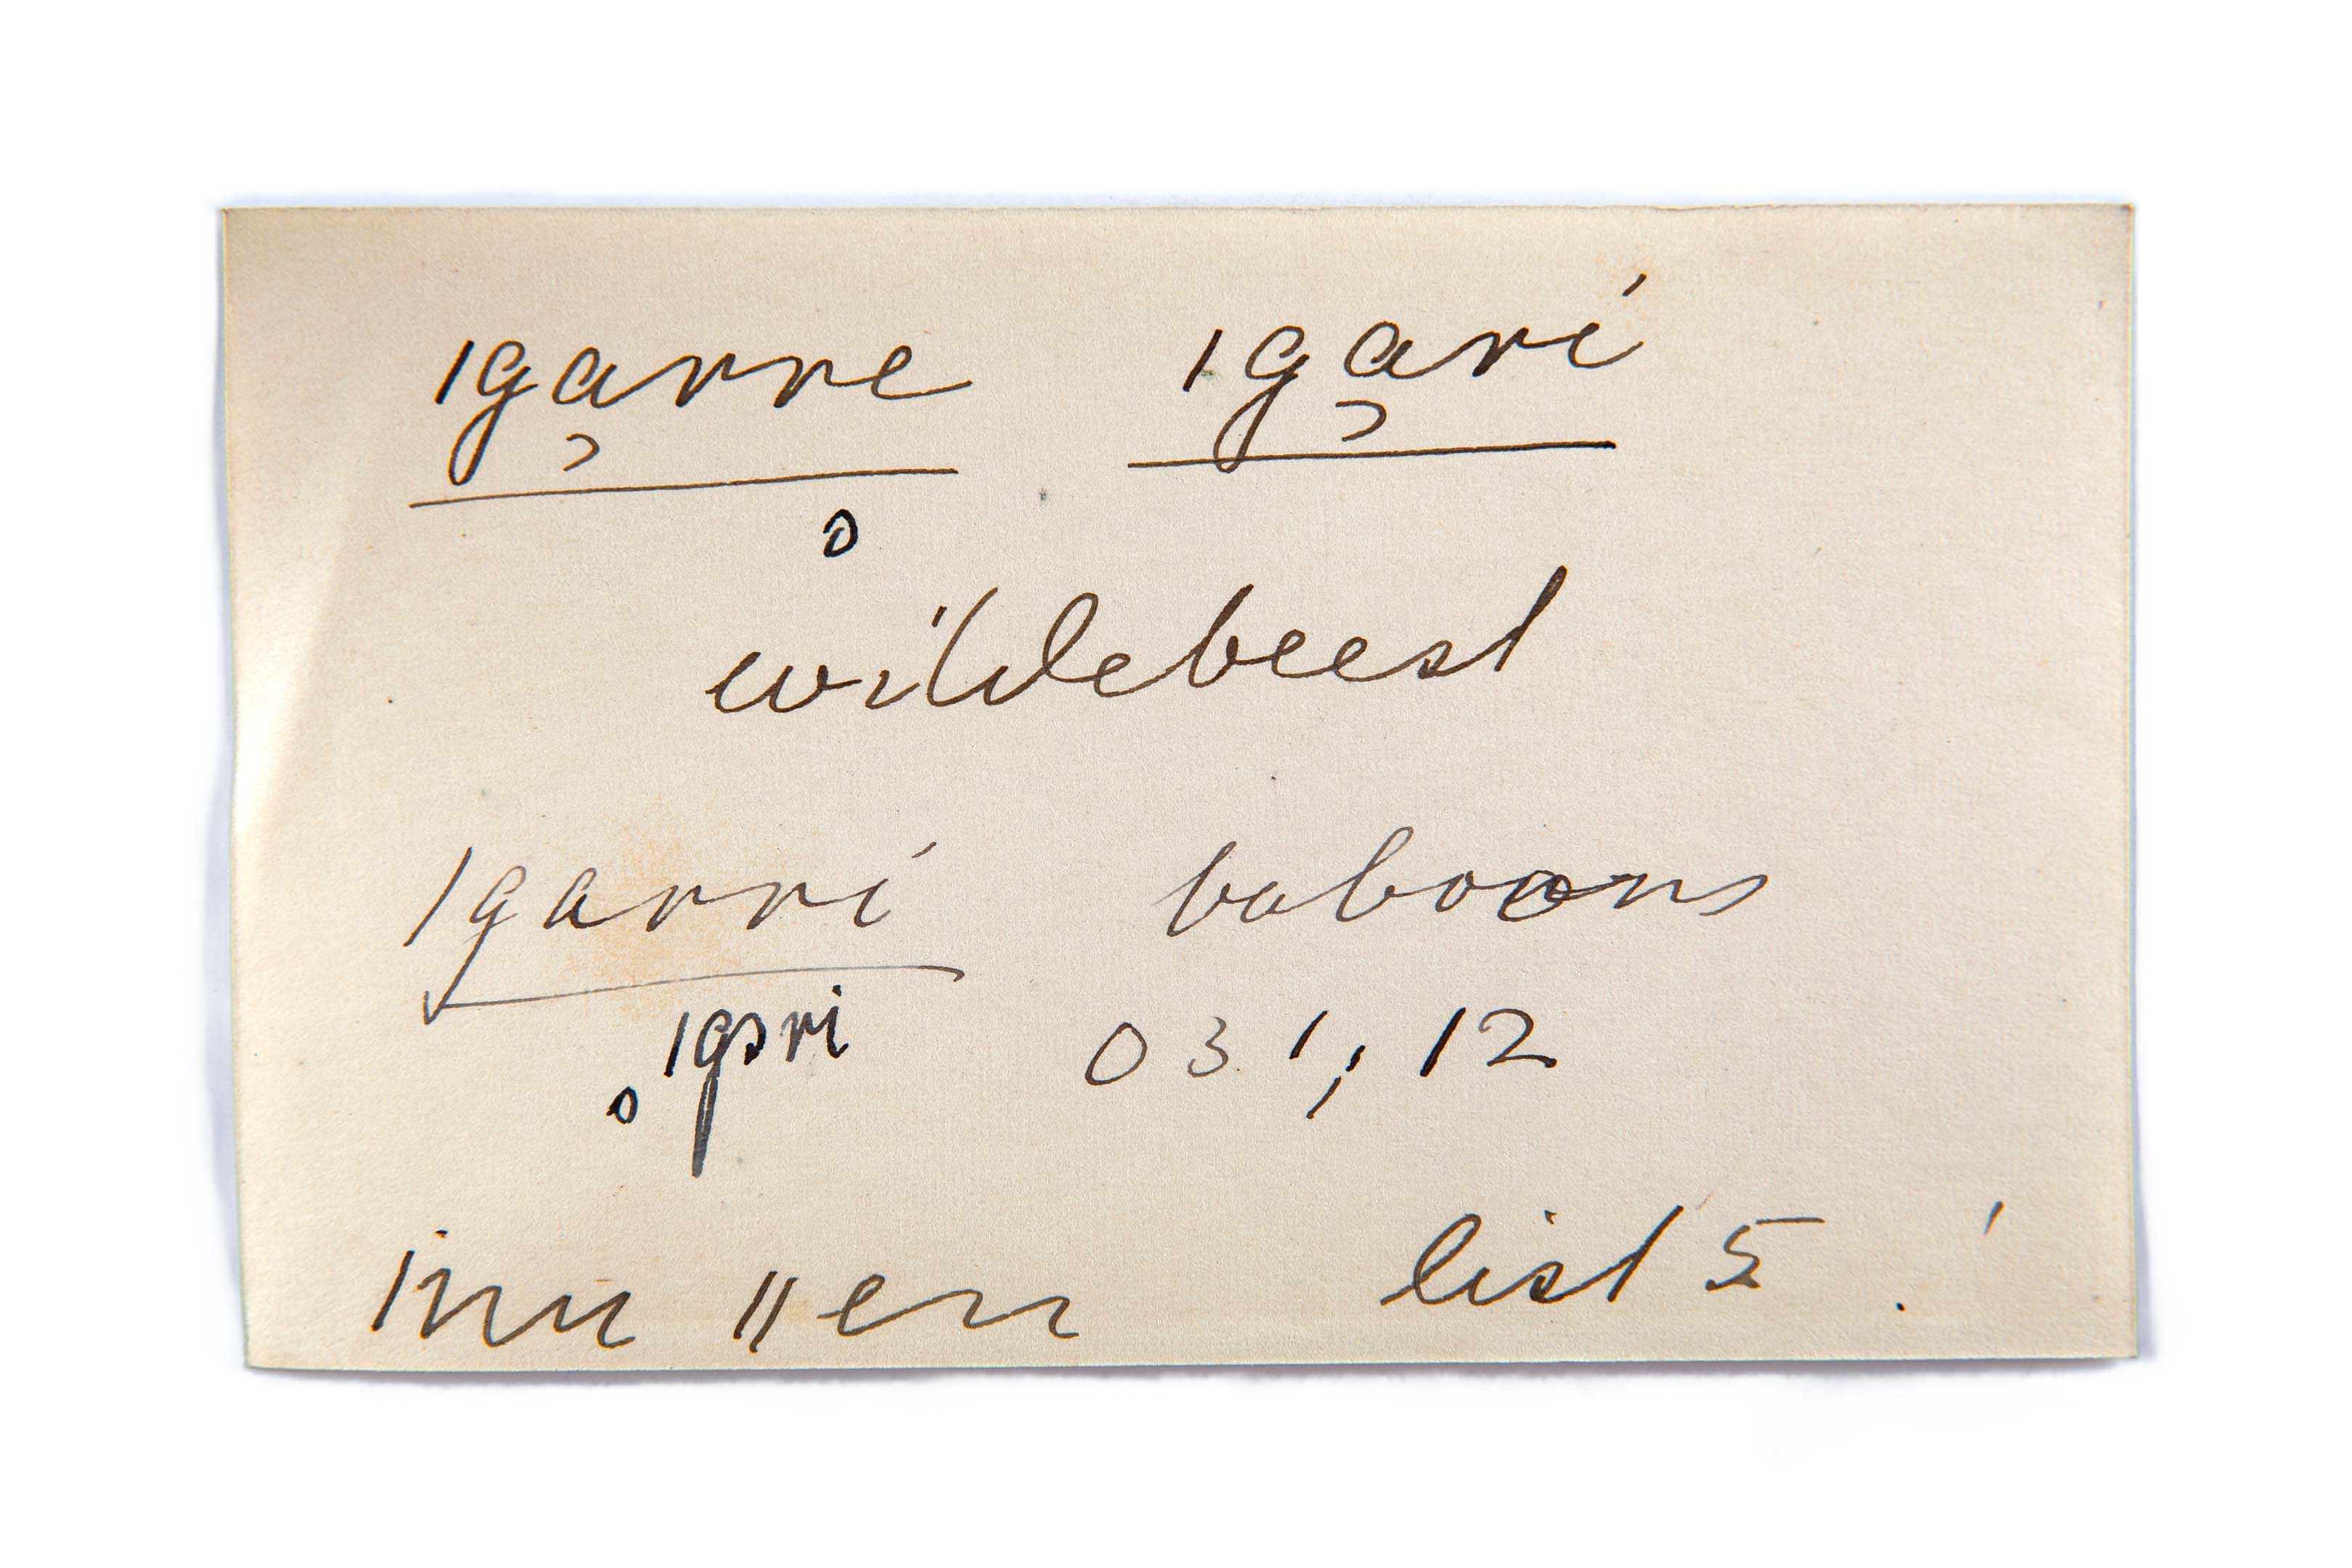 ǀga̹rre ǀga̹ri
o
wildebeest
ǀgarri baboons
ǀgɔri 031, 12
o
ǀnu ǁen list 5 !